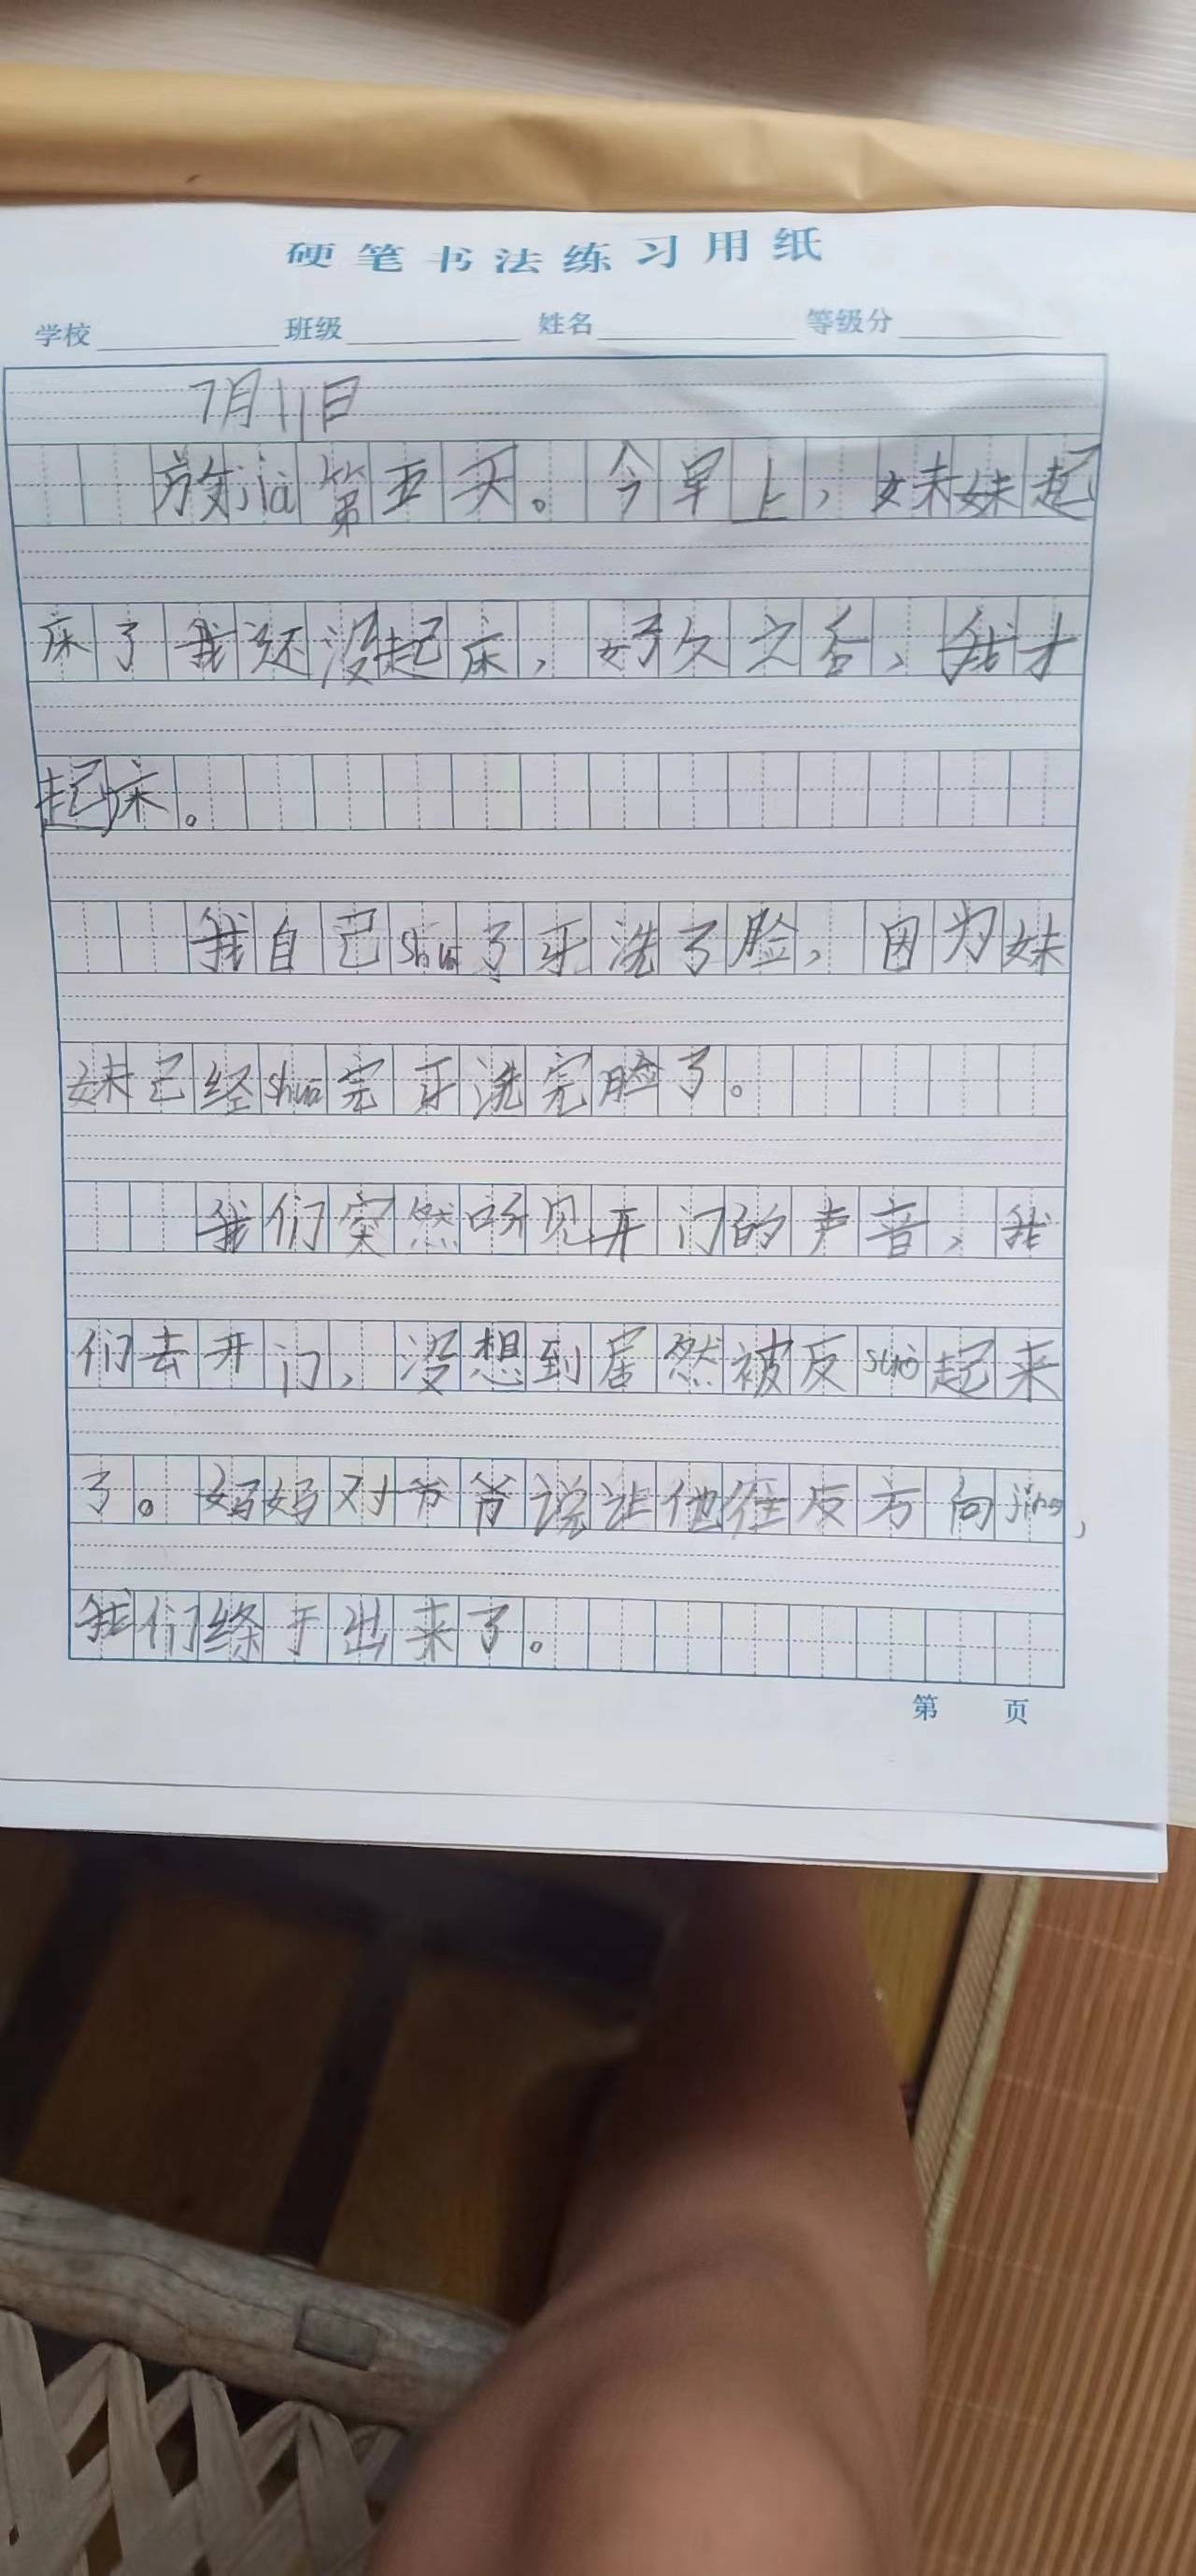 硬笔书法练习用纸
学校 班级 姓名 等级分
7月11日
放jià第五天。今早上，妹妹起
床了我还没起床，好久之后，我才
起床。
我自己shua了牙洗了脸，因为妹
妹已经shua完牙洗完脸了。
我们突然听见开门的声音，我
们去开门，没想到居然被反suǒ起来
了。妈妈对爷爷说让他往反方向jing，
我们终于出来了。
第 页